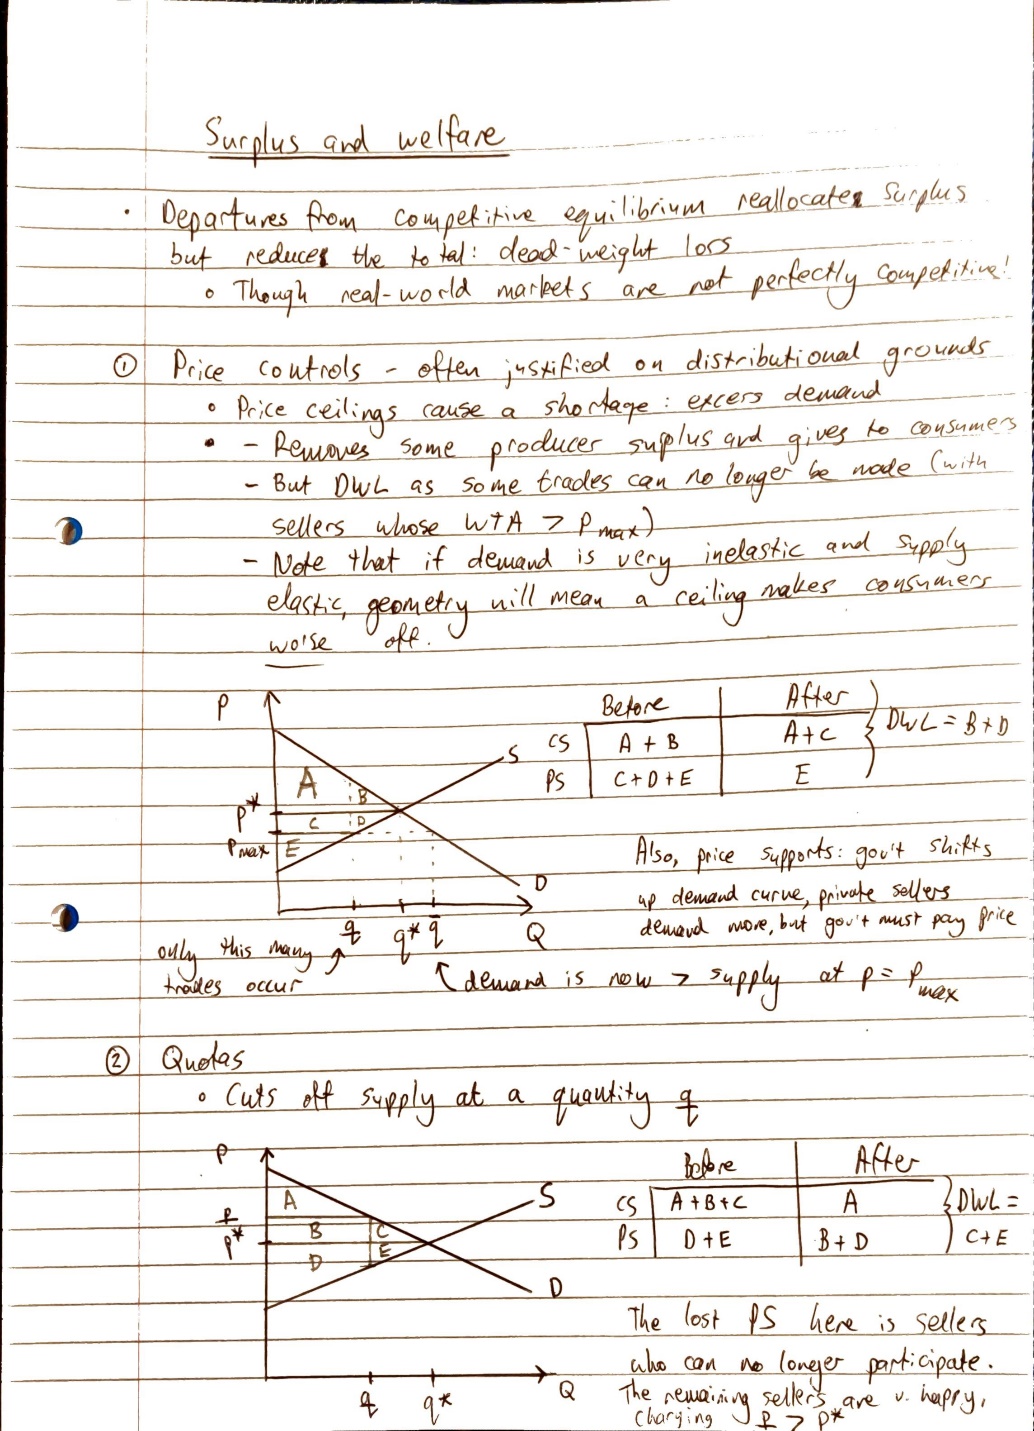 Surplus and welfare
• Departures from competitive equilibrium reallocates surplus
but reduces the total: dead-weight loss
◦ Though real-world markets are not perfectly competitive!
① Price controls - often justified on distributional grounds
◦ Price ceilings cause a shortage: excess demand
• - Removes some producer suplus and gives to consumers
- But DWL as some trades can no longer be made (with
sellers whose WTA > Pmax)
- Note that if demand is very inelastic and supply
elastic, geometry will mean a ceiling makes consumers
worse off.
P
Before After
CS A + B A+C
PS C+D+E E
} DWL = B+D
S
A
B
P*
C
D
Pmax
E
D
q
q*
q̄
Q
Also, price supports: gov't shifts
up demand curve, private sellers
demand more, but gov't must pay price
only this many
trades occur
demand is now > supply at p = Pmax
② Quotas
◦ Cuts off supply at a quantity q
P
Before After
CS A+B+C A
PS D+E B+D
} DWL =
C+E
S
A
p
B
C
P*
D
E
D
q
q*
Q
The lost PS here is sellers
who can no longer participate.
The remaining sellers are v. happy,
charging p > P*